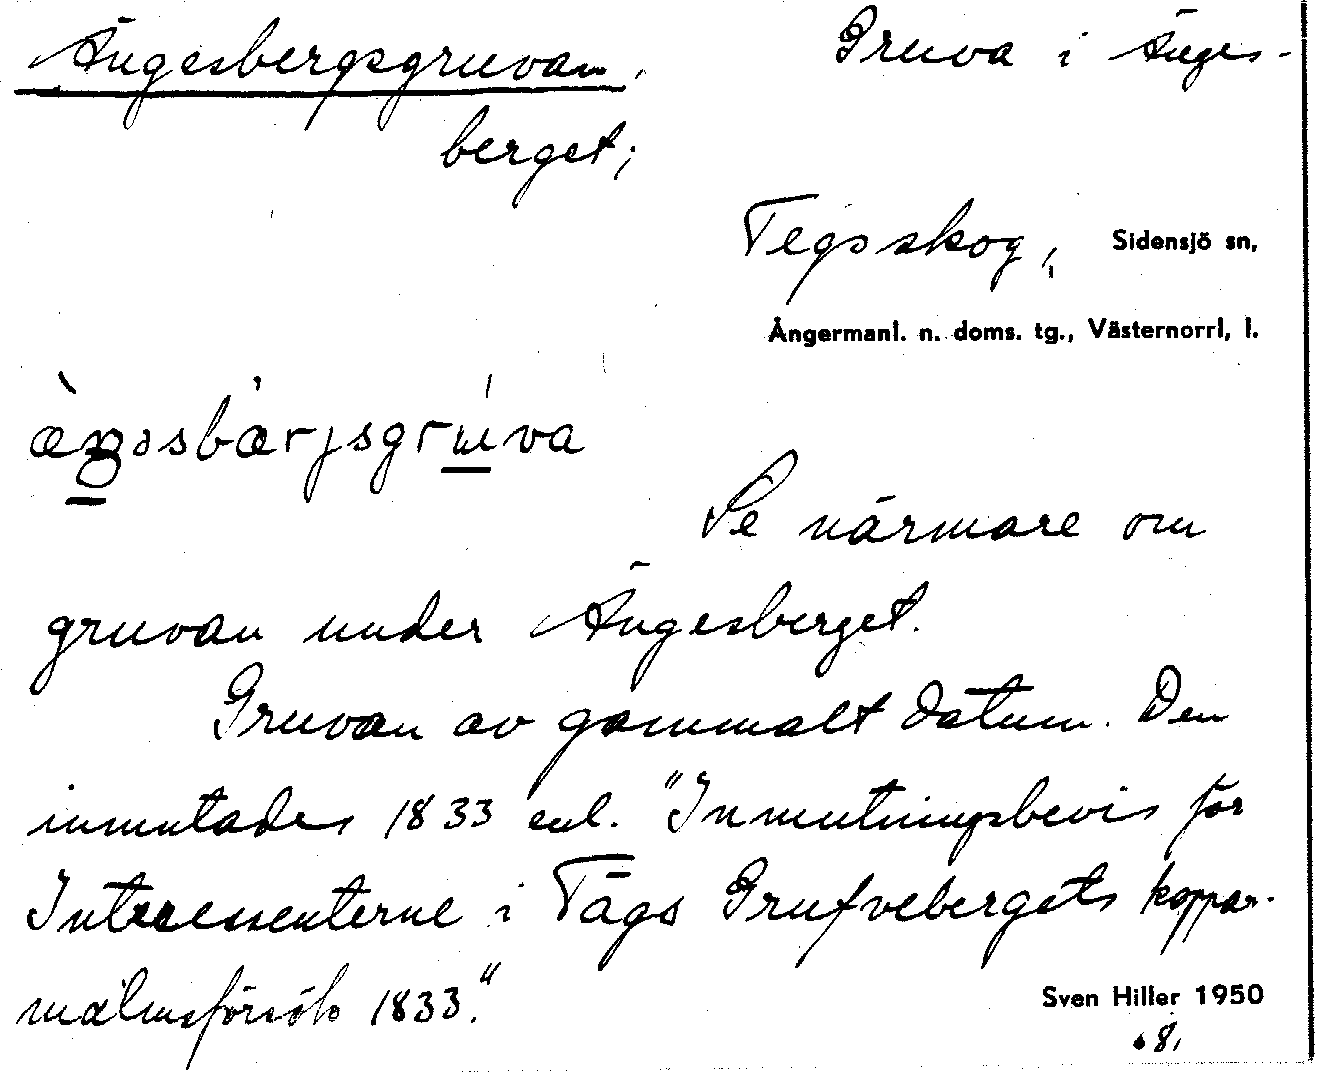 Ängesbergsgruvan, Gruva i Änges-
berget;
Tegsskog, Sidensjö sn,
Ångermanl. n. doms. tg., Västernorrl, l.
æ̀ŋəsbærjsgrúva
Se närmare om
gruvan under Ängesberget.
Gruvan av gammalt datum. Den
inmutades 1833 enl. "Inmutningsbevis för
Intressenterne i Tägs Grufvebergets koppar-
malmsförsök 1833."
Sven Hiller 1950
8.